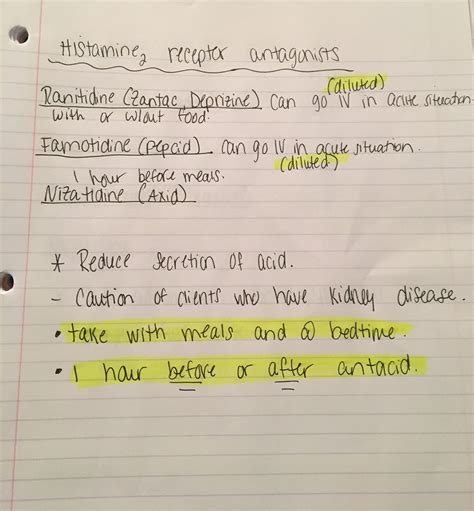 Histamine₂ receptor antagonists
(diluted)
Ranitidine (Zantac, Deprizine) can go IV in acute situation.
with or w/out food.
Famotidine (Pepcid) can go IV in acute situation.
(diluted)
1 hour before meals.
Nizatidine (Axid)
* Reduce secretion of acid.
- Caution of clients who have kidney disease.
• take with meals and @ bedtime.
• 1 hour before or after antacid.